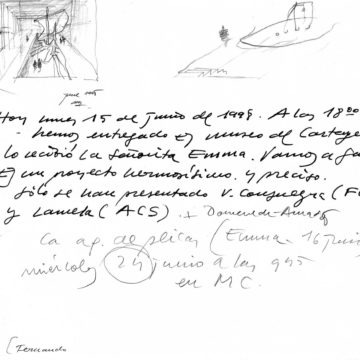 Hoy lunes 15 de junio de 1998. A las 18⁰⁰
- hemos entregado EJ museo de Cartage
lo recibió la Señorita Emma. Vamos a ga
EJ un proyecto hermosísimo. y preciso.
Sólo se han presentado V. Consuegra (F
y Lamela (ACS). + Domenech-Amado
La ap. de plicas (Emma - 16 junio
miércoles 24 junio a las 9⁴⁵
en M C.
Fernando